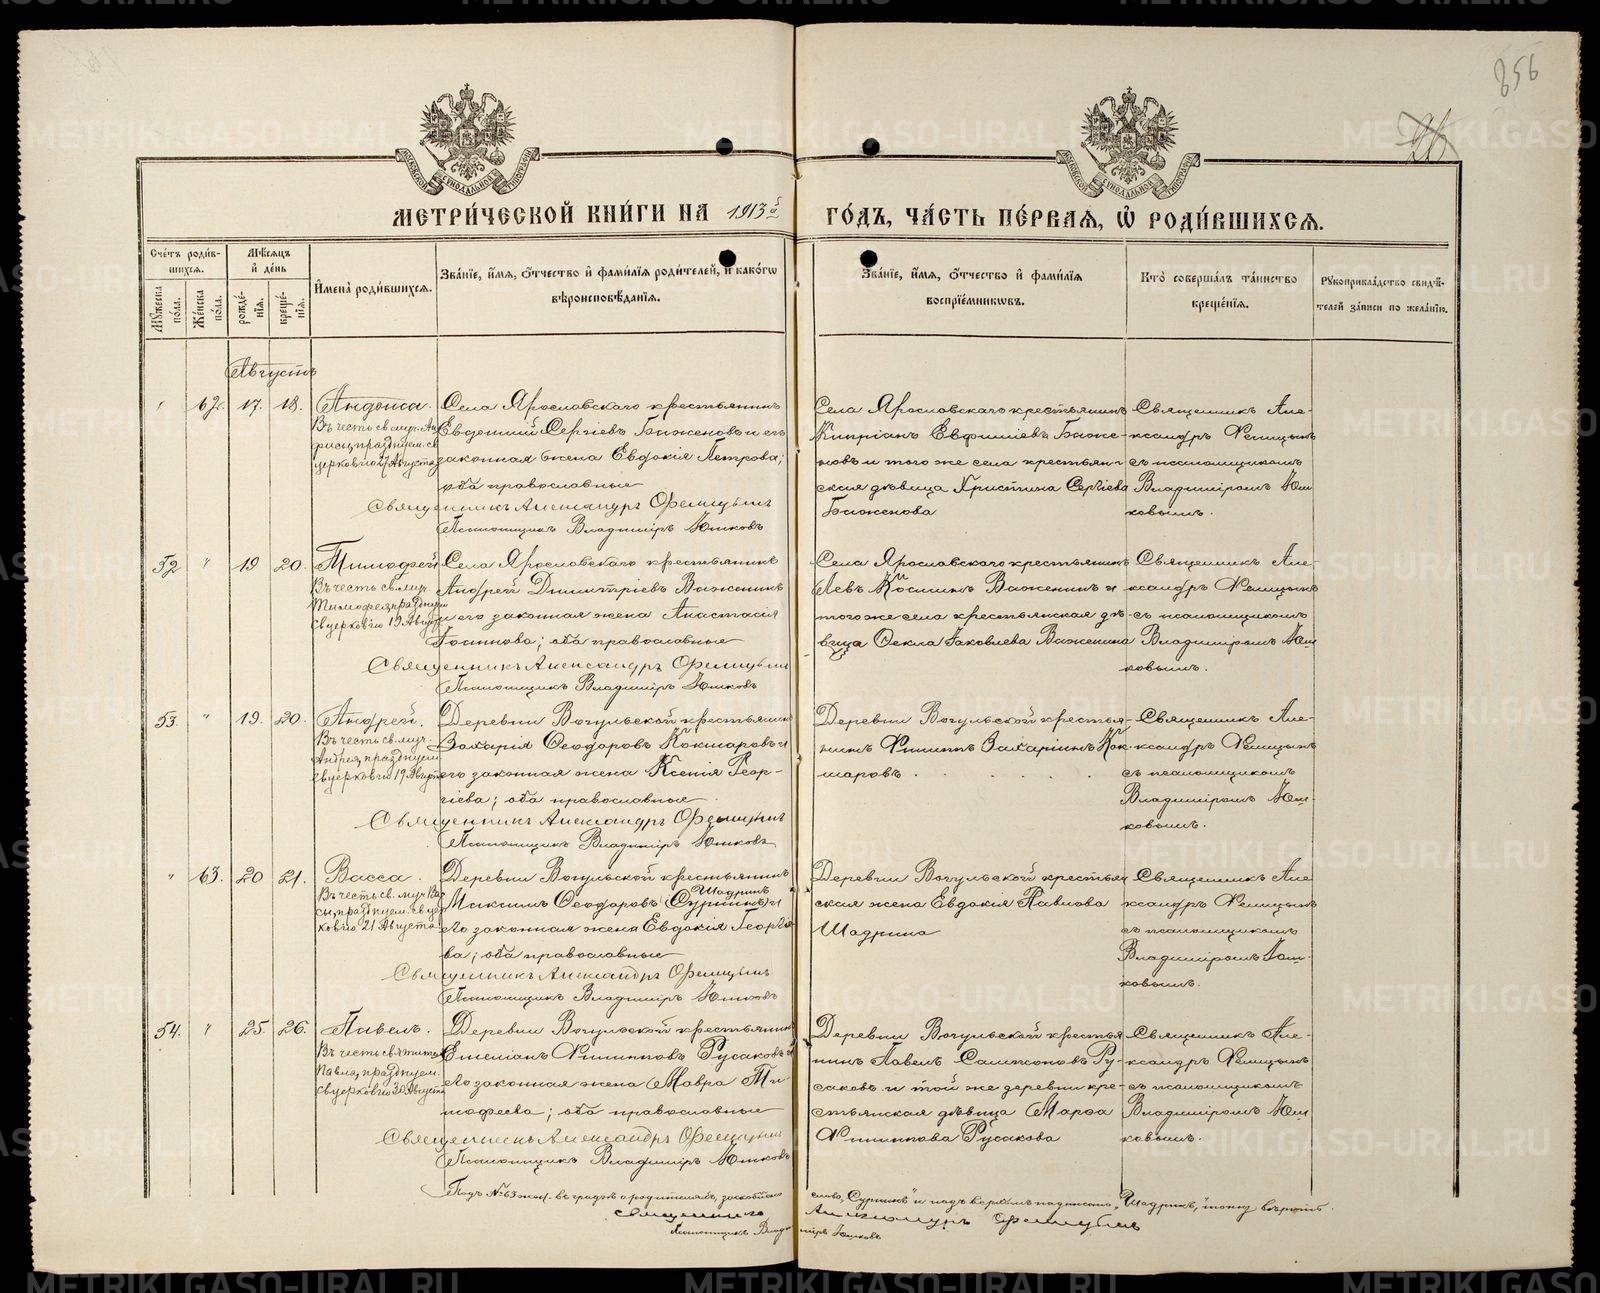 856
26
МЕТРИ́ЧЕСКОЙ КНИ́ГИ НА 1913й ГО́ДЪ, ЧА́СТЬ ПЕ́РВАЯ, Ѽ РОДИ́ВШИХСЯ.
Сче́тъ роди́вшихся.
Му́жеска по́ла.
Же́нска по́ла.
Мѣ́сяцъ и де́нь
рожде́нїя.
креще́нїя.
Имена̀ роди́вшихся.
Зва́нїе, и́мя, о́тчество и фами́лїя роди́телей, и како́гѡ вѣроисповѣ́данїя.
Зва́нїе, и́мя, о́тчество и фами́лїя воспрїе́мникѡвъ.
Кто̀ соверша́лъ та́инство креще́нїя.
Рукоприкла́дство свидѣ́телей за́писи по жела́нїю.
Августъ
" 62. 17. 18.
Въ честь св. муч.
празднуем. св.
церковію 27 Августа
Села Ярославскаго крестьянинъ
Сергіевъ Баженовъ и его
законная жена Евдокія Петрова;
оба православные
Священникъ Александръ Фелицынъ
Псаломщикъ Владиміръ Юшковъ
Села Ярославскаго крестьянинъ
Кипріанъ Евфиміевъ Баже-
новъ и того же села крестьян-
ская дѣвица Христина Сергіева
Баженова
Священникъ Але-
ксандръ Фелицынъ
съ псаломщикомъ
Владиміромъ Юш-
ковымъ.
52 " 19 20.
Тимофей
Въ честь св. муч.
Тимофея, празднуем.
св. церковію 19 Августа
Села Ярославскаго крестьянинъ
Андрей Димитріевъ Важенинъ
и его законная жена Анастасія
оба православные
Священникъ Александръ Фелицынъ
Псаломщикъ Владиміръ Юшковъ
Села Ярославскаго крестьянинъ
Левъ Косминъ Важенинъ и
того же села крестьянская дѣ-
вица Ѳекла Іаковлева Важенина
Священникъ Але-
ксандръ Фелицынъ
съ псаломщикомъ
Владиміромъ Юш-
ковымъ.
53. " 19. 20.
Андрей.
Въ честь св. муч.
Андрея, празднуем.
св. церковію 19 Августа
Деревни Вогульской крестьянинъ
Захарія Ѳеодоровъ Кокшаровъ и
его законная жена Ксенія Геор-
гіева; оба православные
Священникъ Александръ Фелицынъ
Псаломщикъ Владиміръ Юшковъ
Деревни Вогульской крестья-
нинъ Филиппъ Захаріинъ Кок-
шаровъ
Священникъ Але-
ксандръ Фелицынъ
съ псаломщикомъ
Владиміромъ Юш-
ковымъ.
" 63. 20 21.
Васса.
Въ честь св. муч. Вас-
сы, празднуем. св. цер-
ковію 21 Августа
Деревни Вогульской крестьянинъ
Шадринъ
Максимъ Ѳеодоровъ (Суринъ) и
его законная жена Евдокія Георгіе-
ва; оба православные
Священникъ Александръ Фелицынъ
Псаломщикъ Владиміръ Юшковъ
Деревни Вогульской крестьян-
ская жена Евдокія Павлова
Шадрина
Священникъ Але-
ксандръ Фелицынъ
съ псаломщикомъ
Владиміромъ Юш-
ковымъ.
54. " 25. 26.
Павелъ.
Въ честь святителя
Павла, празднуем.
св. церковію 30 Августа
Деревни Вогульской крестьянинъ
Емеліанъ Филипповъ Русаковъ и
его законная жена Мавра Ти-
мофеева; оба православные
Священникъ Александръ Фелицынъ
Псаломщикъ Владиміръ Юшковъ
Деревни Вогульской крестья-
нинъ Павелъ Сампсоновъ Ру-
саковъ и той же деревни кре-
стьянская дѣвица Марѳа
Филиппова Русакова
Священникъ Але-
ксандръ Фелицынъ
съ псаломщикомъ
Владиміромъ Юш-
ковымъ.
Подъ № 63 жен. въ графѣ о родителяхъ, заскоблено слово "Суринъ" и надъ верхомъ надписано "Шадринъ", тому вѣрить.
Священникъ Александръ Фелицынъ
Псаломщикъ Владиміръ Юшковъ
METRIKI.GASO-URAL.RU